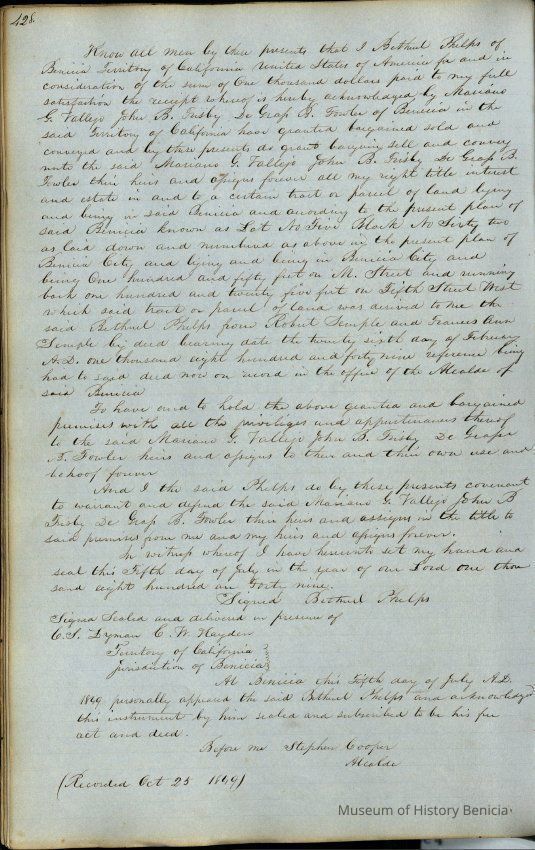 428.
Know all men by these presents that I Bethuel Phelps of
Benicia Territory of California United States of America for and in
consideration of the sum of One thousand dollars paid to my full
satisfaction the receipt whereof is hereby acknowledged by Mariano
G. Vallejo John B. Frisby De Grass B. Fowler of Benicia in the
said Territory of California have granted bargained sold and
conveyed and by these presents do grant bargain sell and convey
unto the said Mariano G. Vallejo John B. Frisby De Grass B.
Fowler their heirs and assigns forever all my right title interest
and estate in and to a certain tract or parcel of land lying
and being in said Benicia and according to the present plan of
said Benicia known as Lot No Five Block No Sixty two
as laid down and numbered as above in the present plan of
Benicia City and lying and being in Benicia City and
being One hundred and fifty feet on M. Street and running
back one hundred and twenty five feet on Fifth Street West
which said tract or parcel of land was derived to me the
said Bethuel Phelps from Robert Semple and Frances Ann
Semple by deed bearing date the twenty sixth day of February
A.D. one thousand eight hundred and forty nine reference being
had to said deed now on record in the office of the Alcalde of
said Benicia
To have and to hold the above granted and bargained
premises with all the priviliges and appurtenances thereof
to the said Mariano G. Vallejo John B. Frisby De Grass
B. Fowler heirs and assigns to them and their own use and
behoof forever
And I the said Phelps do by these presents covenant
to warrant and defend the said Mariano G. Vallejo John B
Frisby De Grass B. Fowler their heirs and assigns in the title to
said premises from me and my heirs and assigns forever.
In witness whereof I have hereunto set my hand and
seal this Fifth day of July in the year of our Lord one thou
sand eight hundred and Forty nine.
Signed Bethuel Phelps
Signed Sealed and delivered in presence of
C. S. Lyman C. W. Hayden
Territory of California
Jurisdiction of Benicia
At Benicia this Fifth day of July A.D.
1849 personally appeared the said Bethuel Phelps and acknowledged
this instrument by him sealed and subscribed to be his free
act and deed.
Before me Stephen Cooper
Alcalde
(Recorded Oct 25 1849)
Museum of History Benicia